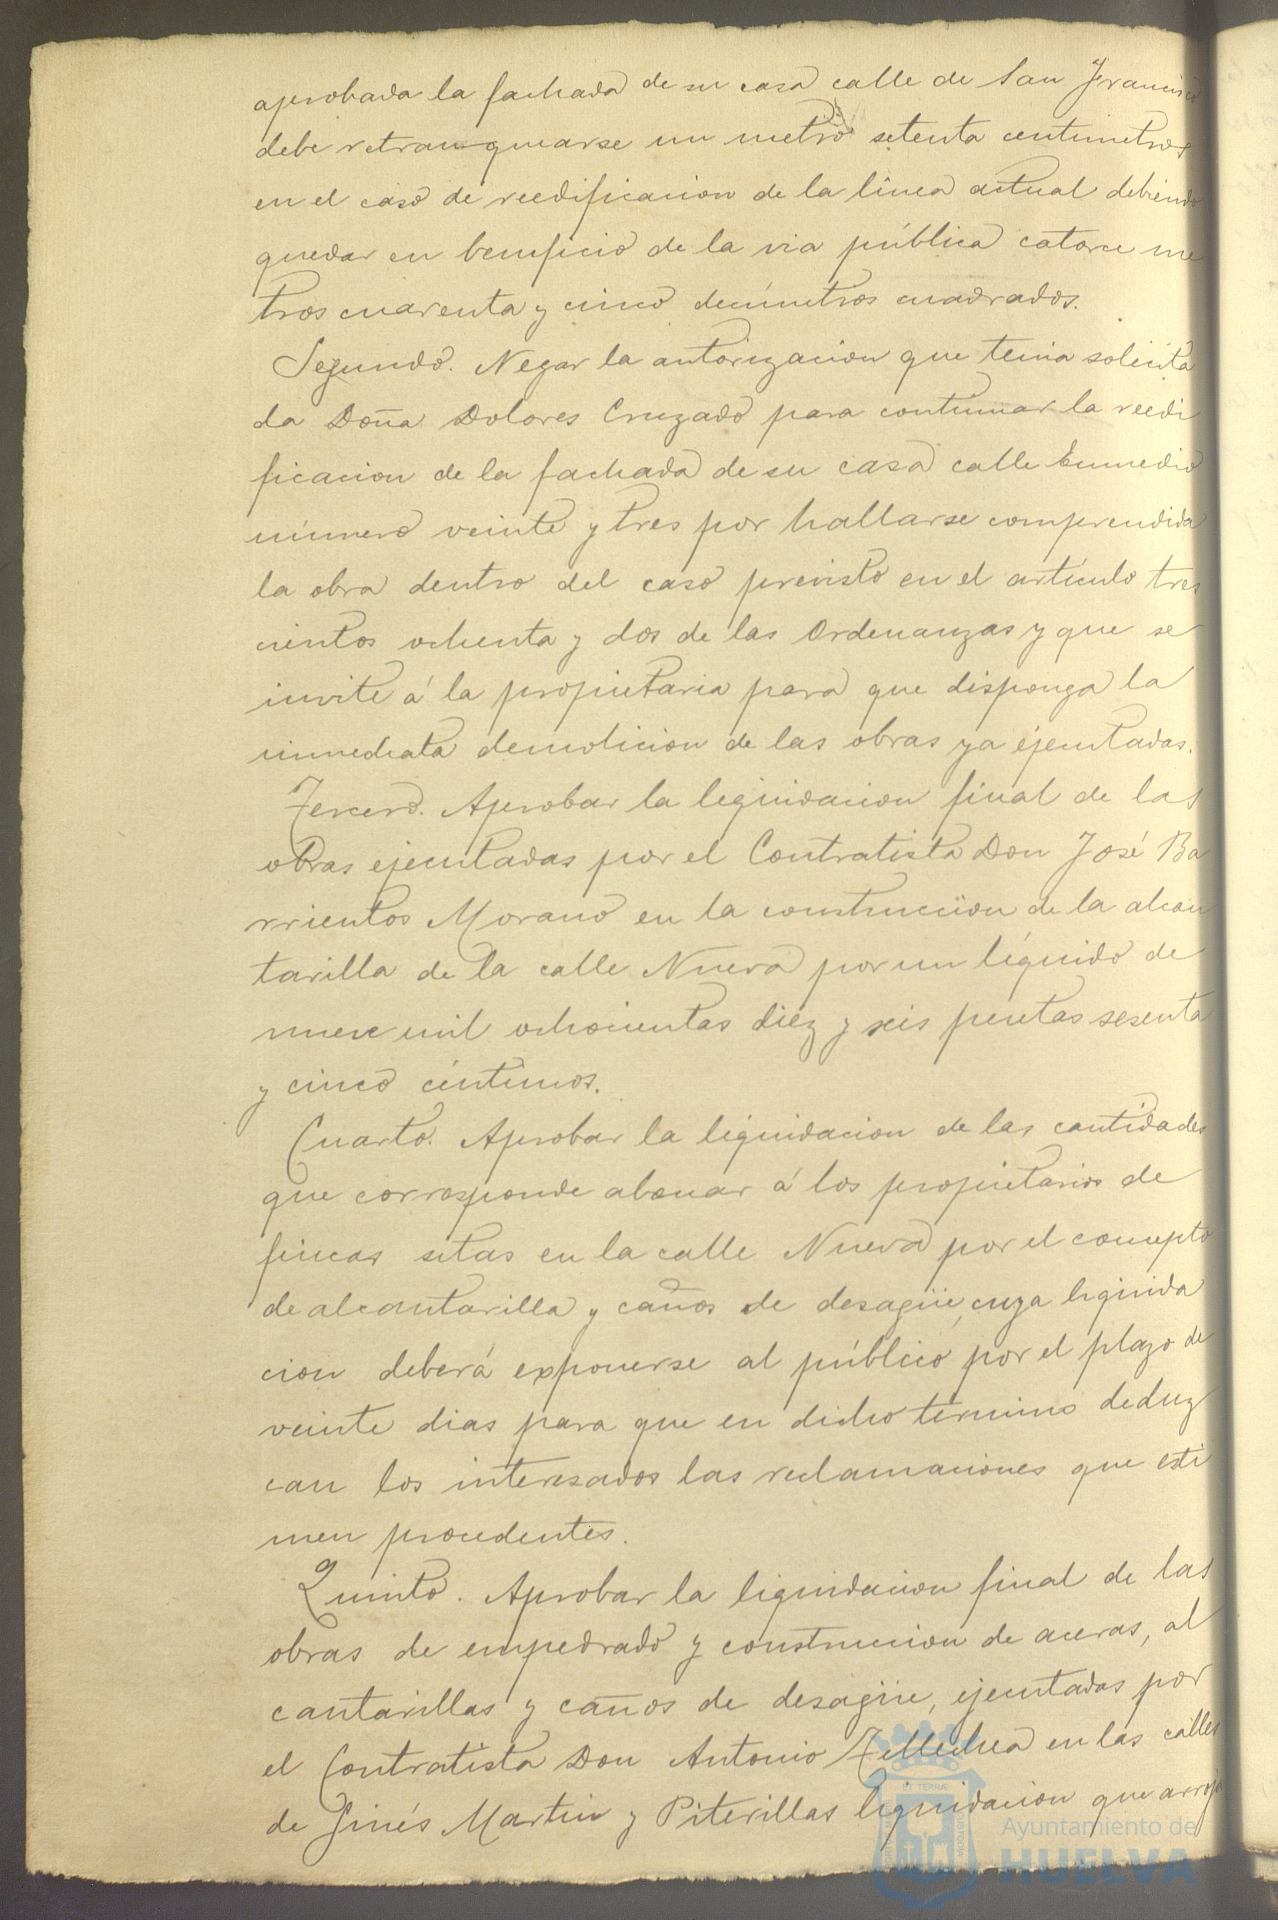 aprobada la fachada de su casa calle de San Francisco
debe retranquearse un metro setenta centimetros
en el caso de reedificacion de la línea actual debiendo
quedar en beneficio de la via pública catorce me
tros cuarenta y cinco decímetros cuadrados.
Segundo. Negar la autorizacion que tenia solicita
da Doña Dolores Cruzado para continuar la reedi
ficacion de la fachada de su casa calle Enmedio
número veinte y tres por hallarse comprendida
la obra dentro del caso previsto en el artículo tres
cientos ochenta y dos de las Ordenanzas y que se
invite á la propietaria para que disponga la
inmediata demolicion de las obras ya ejecutadas.
Tercero. Aprobar la liquidacion final de las
obras ejecutadas por el Contratista Don José Ba
rrientos Morano en la construccion de la alcan
tarilla de la calle Nueva por un líquido de
nueve mil ochocientas diez y seis pesetas sesenta
y cinco céntimos.
Cuarto. Aprobar la liquidacion de las cantidades
que corresponde abonar á los propietarios de
fincas sitas en la calle Nueva por el concepto
de alcantarilla y caños de desagüe, cuya liquida
cion deberá exponerse al público por el plazo de
veinte dias para que en dicho término deduz
can los interesados las reclamaciones que esti
men procedentes.
Quinto. Aprobar la liquidacion final de las
obras de empedrado y construccion de aceras, al
cantarillas y caños de desagüe, ejecutadas por
el Contratista Don Antonio Tellechea en las calles
de Ginés Martin y Piterillas liquidacion que arroja
Ayuntamiento de
HUELVA